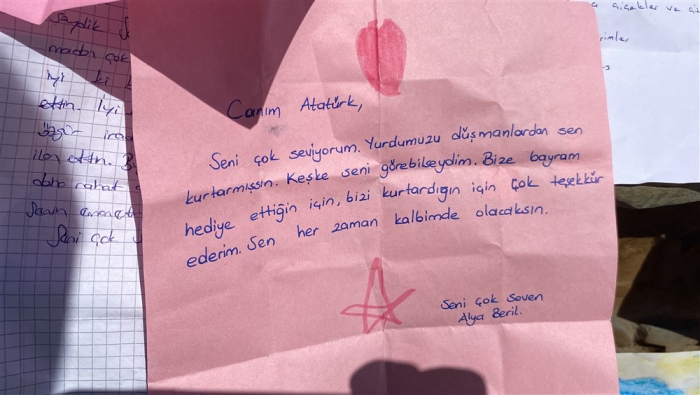 Canım Atatürk,
Seni çok seviyorum. Yurdumuzu düşmanlardan sen
kurtarmışsın. Keşke seni görebilseydim. Bize bayram
hediye ettiğin için, bizi kurtardığın için çok teşekkür
ederim. Sen her zaman kalbimde olacaksın.
Seni çok Seven
Alya Beril.
çok
iyi ki
ettin. İyi
daha rahat
Seni çok
çiçekler ve